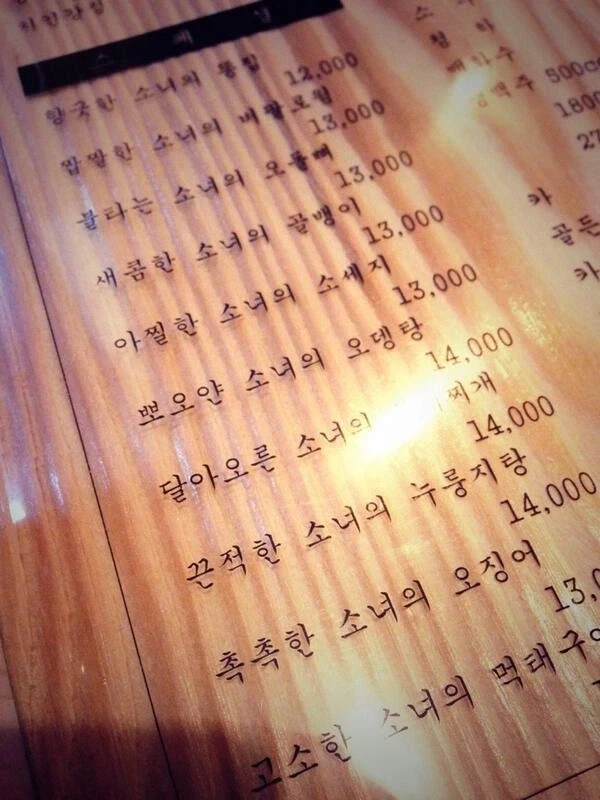 소 메 닝
향긋한 소녀의 똥집 12,000
짭짤한 소녀의 버팔로윙 13,000
불타는 소녀의 오돌뼈 13,000
새콤한 소녀의 골뱅이 13,000
아찔한 소녀의 소세지 13,000
뽀오얀 소녀의 오뎅탕 14,000
달아오른 소녀의 찌개 14,000
끈적한 소녀의 누룽지탕 14,000
촉촉한 소녀의 오징어 13,0
고소한 소녀의 먹태구이
소 주
청 하
백화수
생맥주 500cc
1800
27
카
골든
카